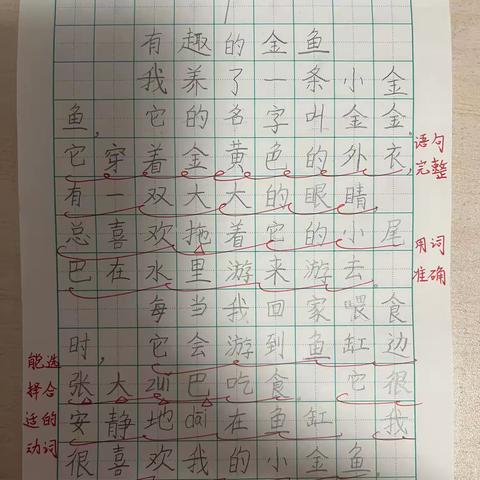 有趣的金鱼
我养了一条小金
鱼，它的名字叫金金。
它穿着金黄色的外衣，
有一双大大的眼睛，
总喜欢拖着它的小尾
巴在水里游来游去。
每当我回家喂食
时，它会游到鱼缸边
张大zuǐ巴吃食。它很
安静地dāi在鱼缸。我
很喜欢我的小金鱼。
语句
完整
用词
准确
能选
择合
适的
动词